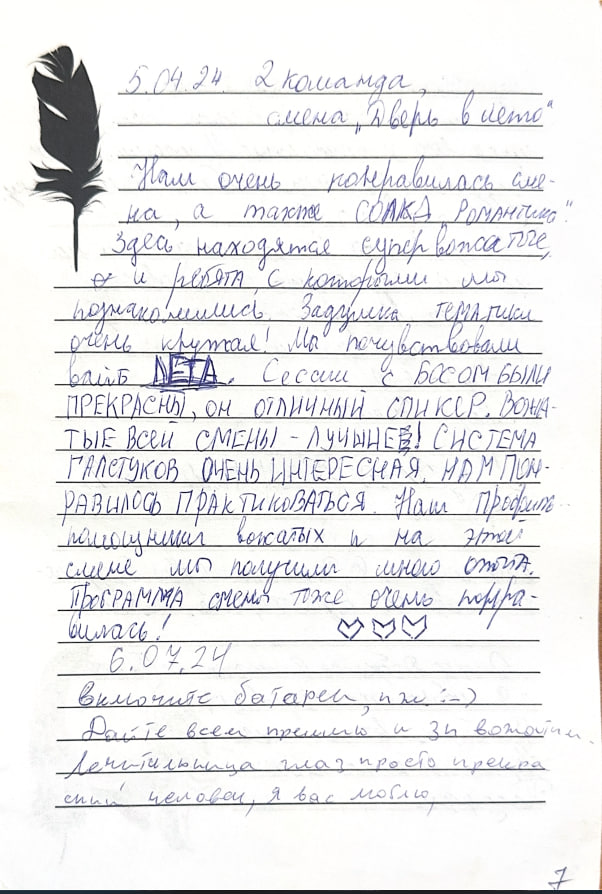 5.04.24. 2 команда,
смена „Дверь в лето"
Нам очень понравилась сме-
на, а также СОПКА „РОМАНТИКА".
Здесь находятся супер вожатые,
и РЕБЯТА, с которыми мы
познакомились. Задумка ТЕМАТИКИ
очень крутая! Мы почувствовали
вайб ЛЕТА. Сессии с БОСОМ БЫЛИ
ПРЕКРАСНЫ, ОН ОТЛИЧНЫЙ СПИКЕР. ВОЖА-
ТЫЕ ВСЕЙ СМЕНЫ - ЛУЧШИЕ! СИСТЕМА
ГАЛСТУКОВ ОЧЕНЬ ИНТЕРЕСНАЯ. НАМ ПОН-
РАВИЛОСЬ ПРАКТИКОВАТЬСЯ. Наш Профиль
помощники вожатых и на этой
смене мы получили много опыта.
ПРОГРАММА смены тоже очень понра-
вилась!
6.07.24
Включите батареи, пж :-)
Дайте всем премию и зп вожатым.
глаз просто прекра
сный человек, я вас люблю,
7